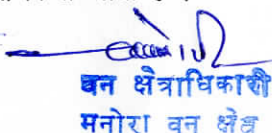 वन क्षेत्राधिकारी
मनोरा वन क्षेत्र